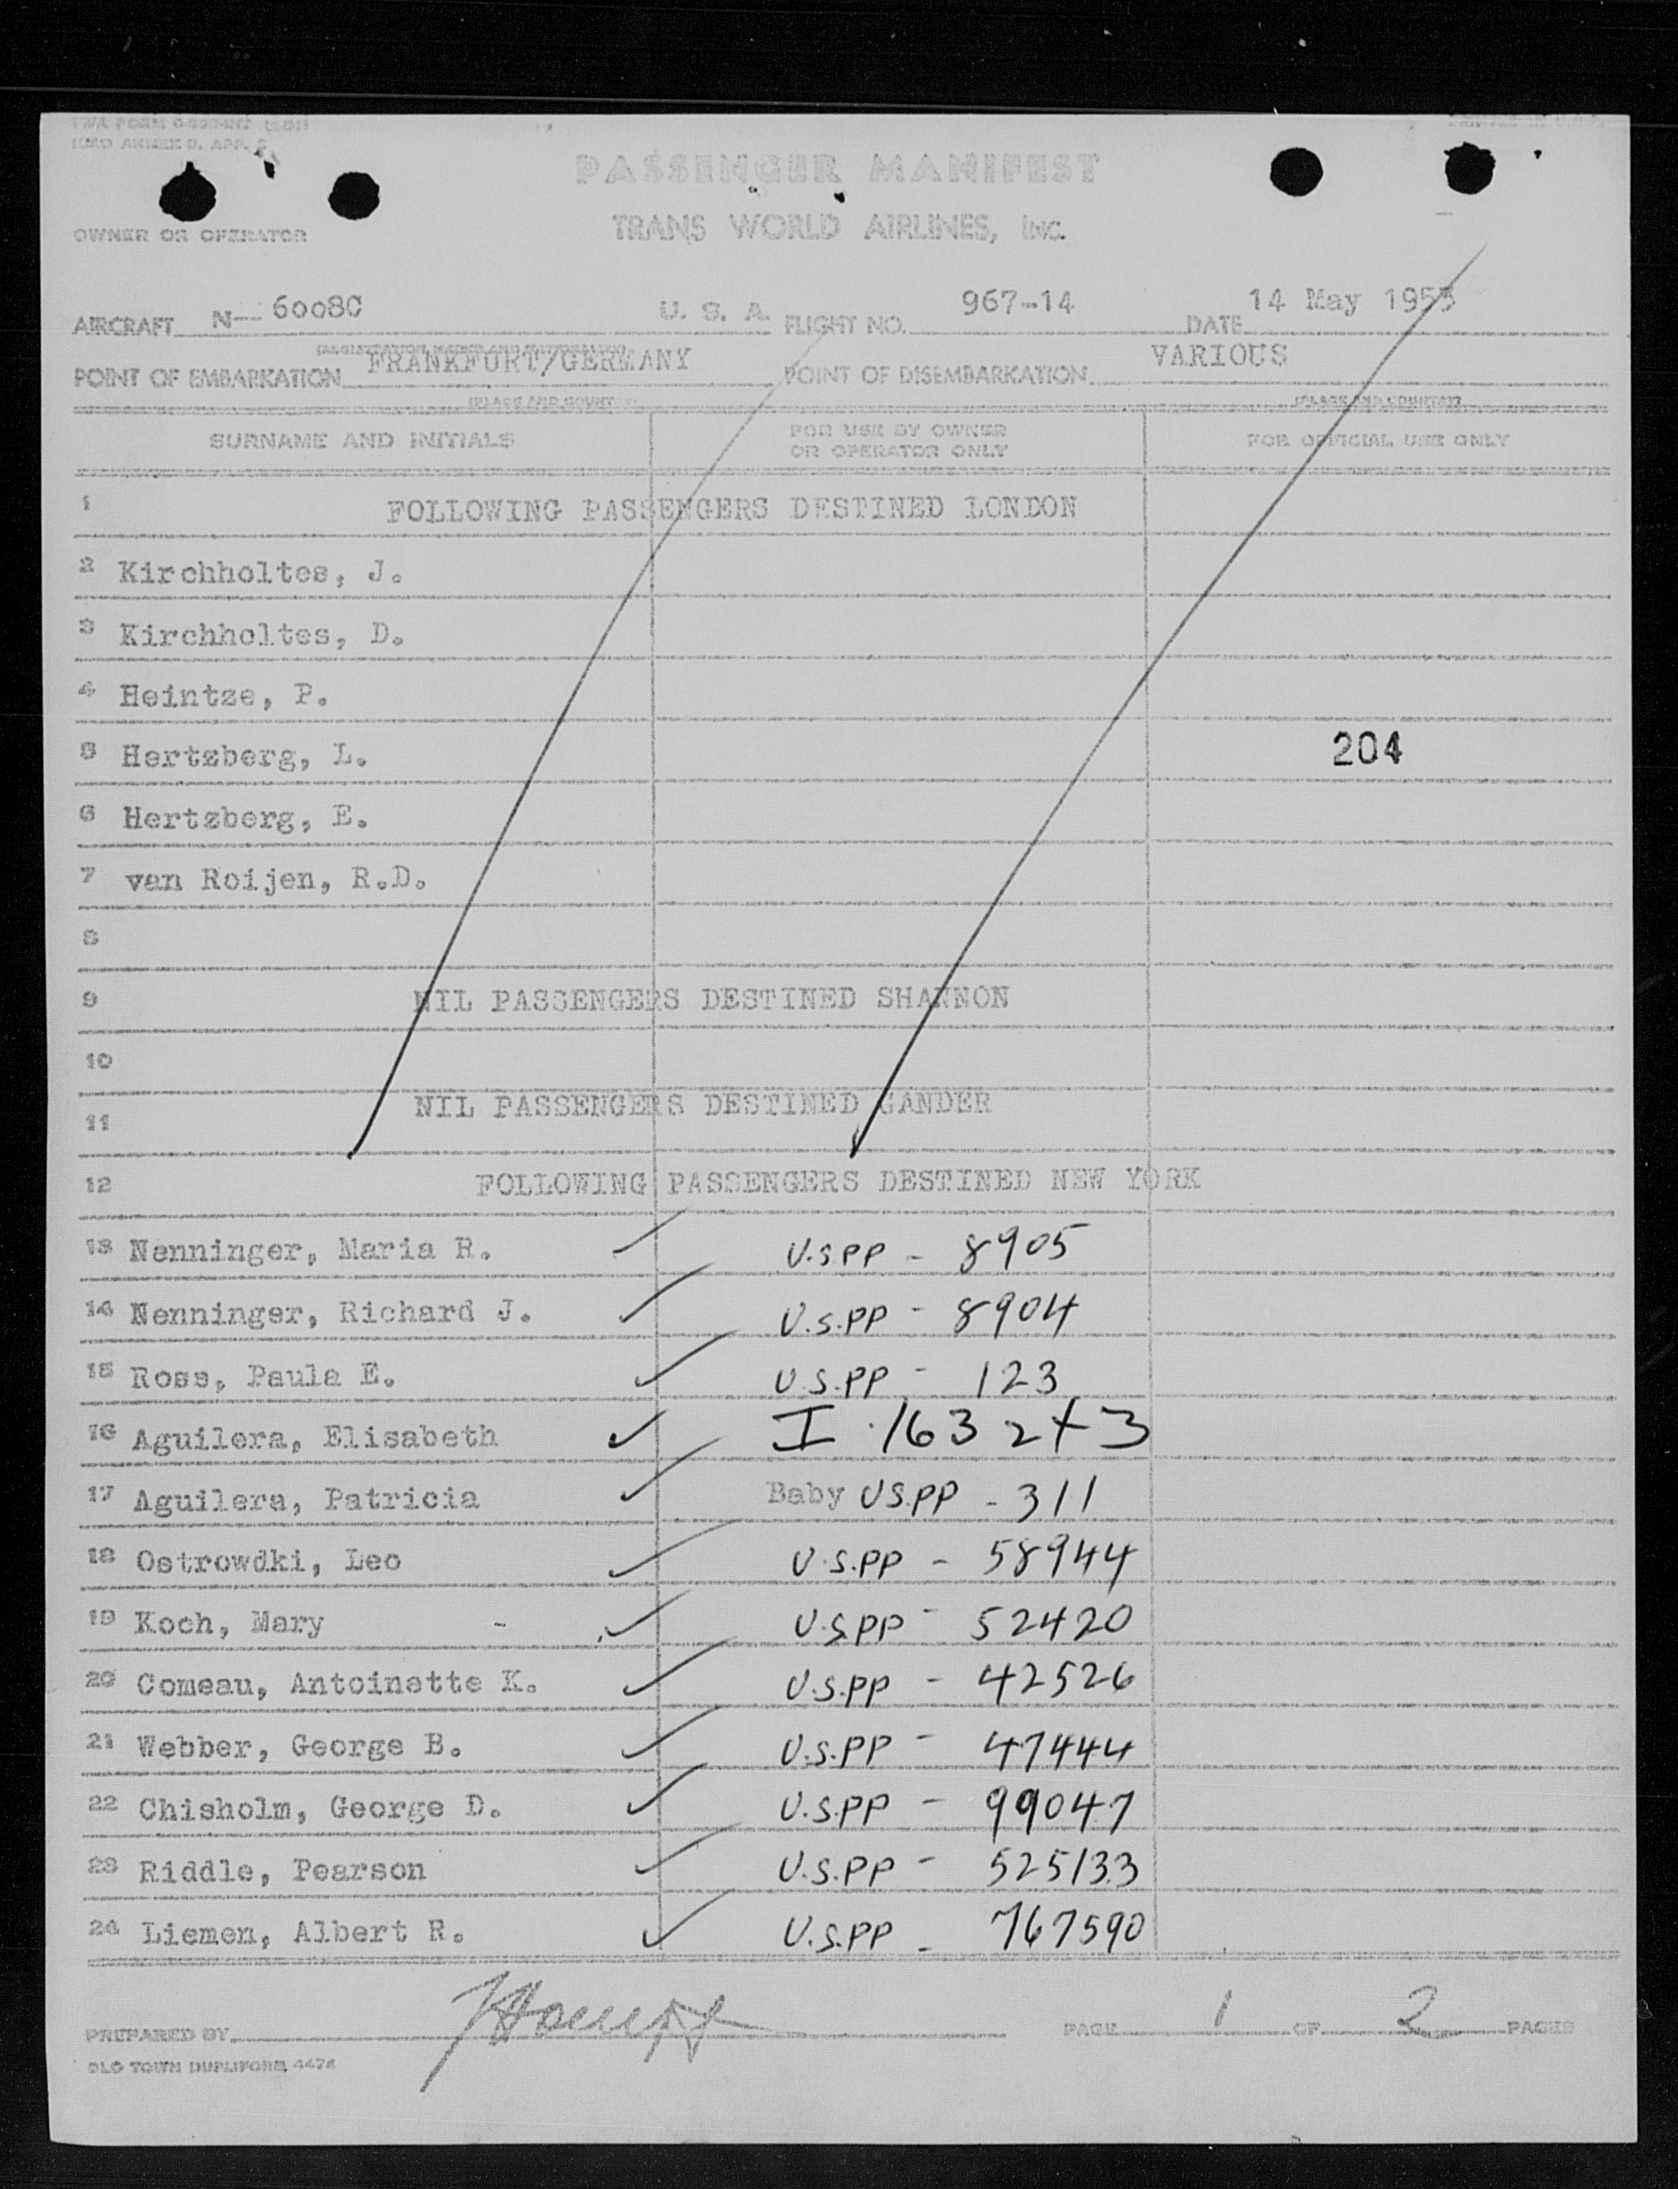 PASSENGER MANIFEST
TRANS WORLD AIRLINES, INC.
OWNER OR OPERATOR
AIRCRAFT N- 6008C U. S. A. FLIGHT NO. 967-14 DATE 14 May 1955
POINT OF EMBARKATION FRANKFURT/GERMANY POINT OF DISEMBARKATION VARIOUS
SURNAME AND INITIALS FOR USE BY OWNER OR OPERATOR ONLY FOR OFFICIAL USE ONLY
1 FOLLOWING PASSENGERS DESTINED LONDON
2 Kirchholtes, J.
3 Kirchholtes, D.
4 Heintze, P.
5 Hertzberg, L. 204
6 Hertzberg, E.
7 van Roijen, R.D.
8
9 NIL PASSENGERS DESTINED SHANNON
10
11 NIL PASSENGERS DESTINED GANDER
12 FOLLOWING PASSENGERS DESTINED NEW YORK
13 Nenninger, Maria R. U.S PP - 8905
14 Nenninger, Richard J. U.S.PP - 8904
15 Ross, Paula E. U.S.PP - 123
16 Aguilera, Elisabeth I
17 Aguilera, Patricia Baby U.S.PP - 311
18 Ostrowdki, Leo U.S.PP - 58944
19 Koch, Mary U.S.PP - 52420
20 Comeau, Antoinette K. U.S.PP - 42526
21 Webber, George B. U.S.PP - 47444
22 Chisholm, George D. U.S.PP - 99047
23 Riddle, Pearson U.S.PP - 525133
24 Liemen, Albert R. U.S.PP - 767590
PREPARED BY PAGE 1 OF 2 PAGES
OLD TOWN DUPLIFORM 4474